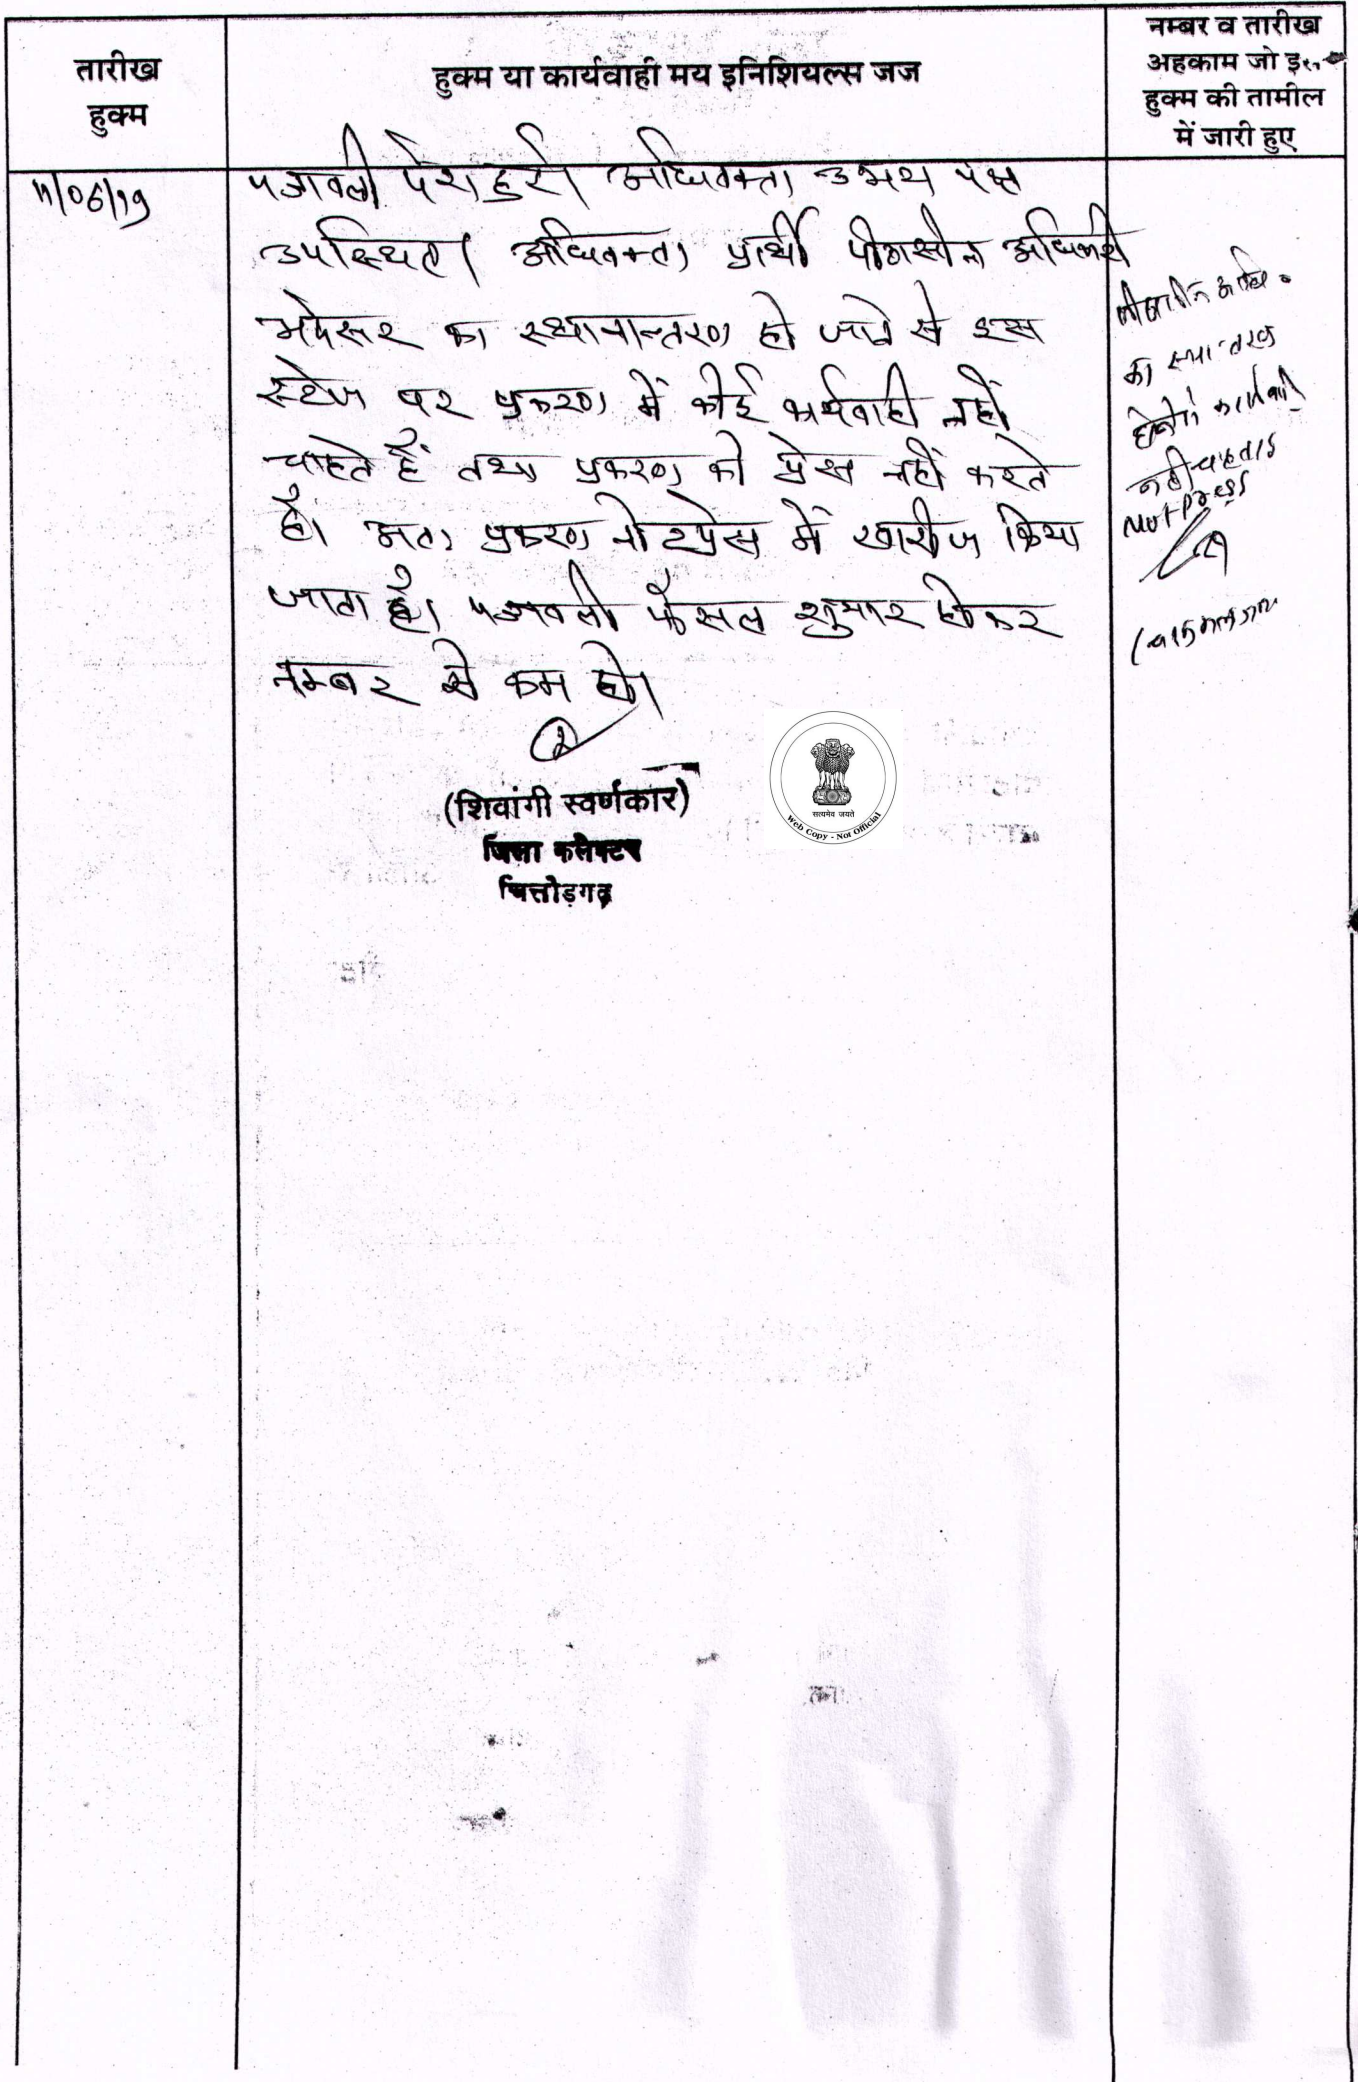 तारीख
हुक्म
हुक्म या कार्यवाही मय इनिशियल्स जज
नम्बर व तारीख
अहकाम जो इस
हुक्म की तामील
में जारी हुए
11/06/19
पत्रावली पेश हुई। अधिवक्ता उभय पक्ष
उपस्थित। अधिवक्ता प्रार्थी पीठासीन अधिकारी
भदेसर का स्थानान्तरण हो जाने से इस
स्टेज पर प्रकरण में कोई कार्यवाही नहीं
चाहते हैं तथा प्रकरण को प्रेस नहीं करते
है। अतः प्रकरण नोटप्रेस में खारीज किया
जाता है। पत्रावली फैसल शुमार होकर
नम्बर से कम हो।
(शिवांगी स्वर्णकार)
जिला कलेक्टर
चित्तौड़गढ़
सत्यमेव जयते
Web Copy - Not Official
पीठासीन अधि०
का स्थानतरण
होने से कार्यवाही
नही चाहता है
Not press